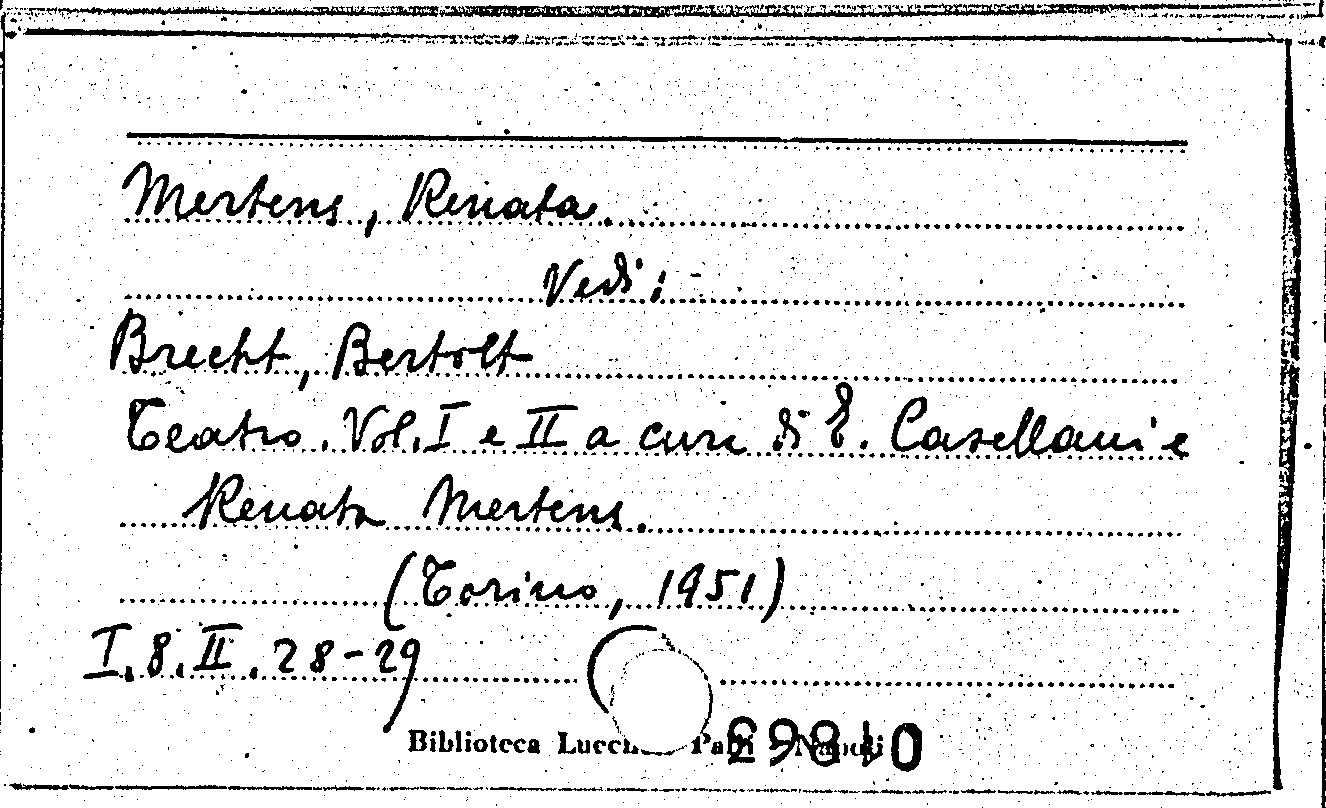 Mertens, Renata.
Vedi:
Brecht, Bertolt
Teatro. Vol. I e II a cura di E. Casellani e
Renata Mertens.
(Torino, 1951)
I.8.II.28-29
Biblioteca Napoli